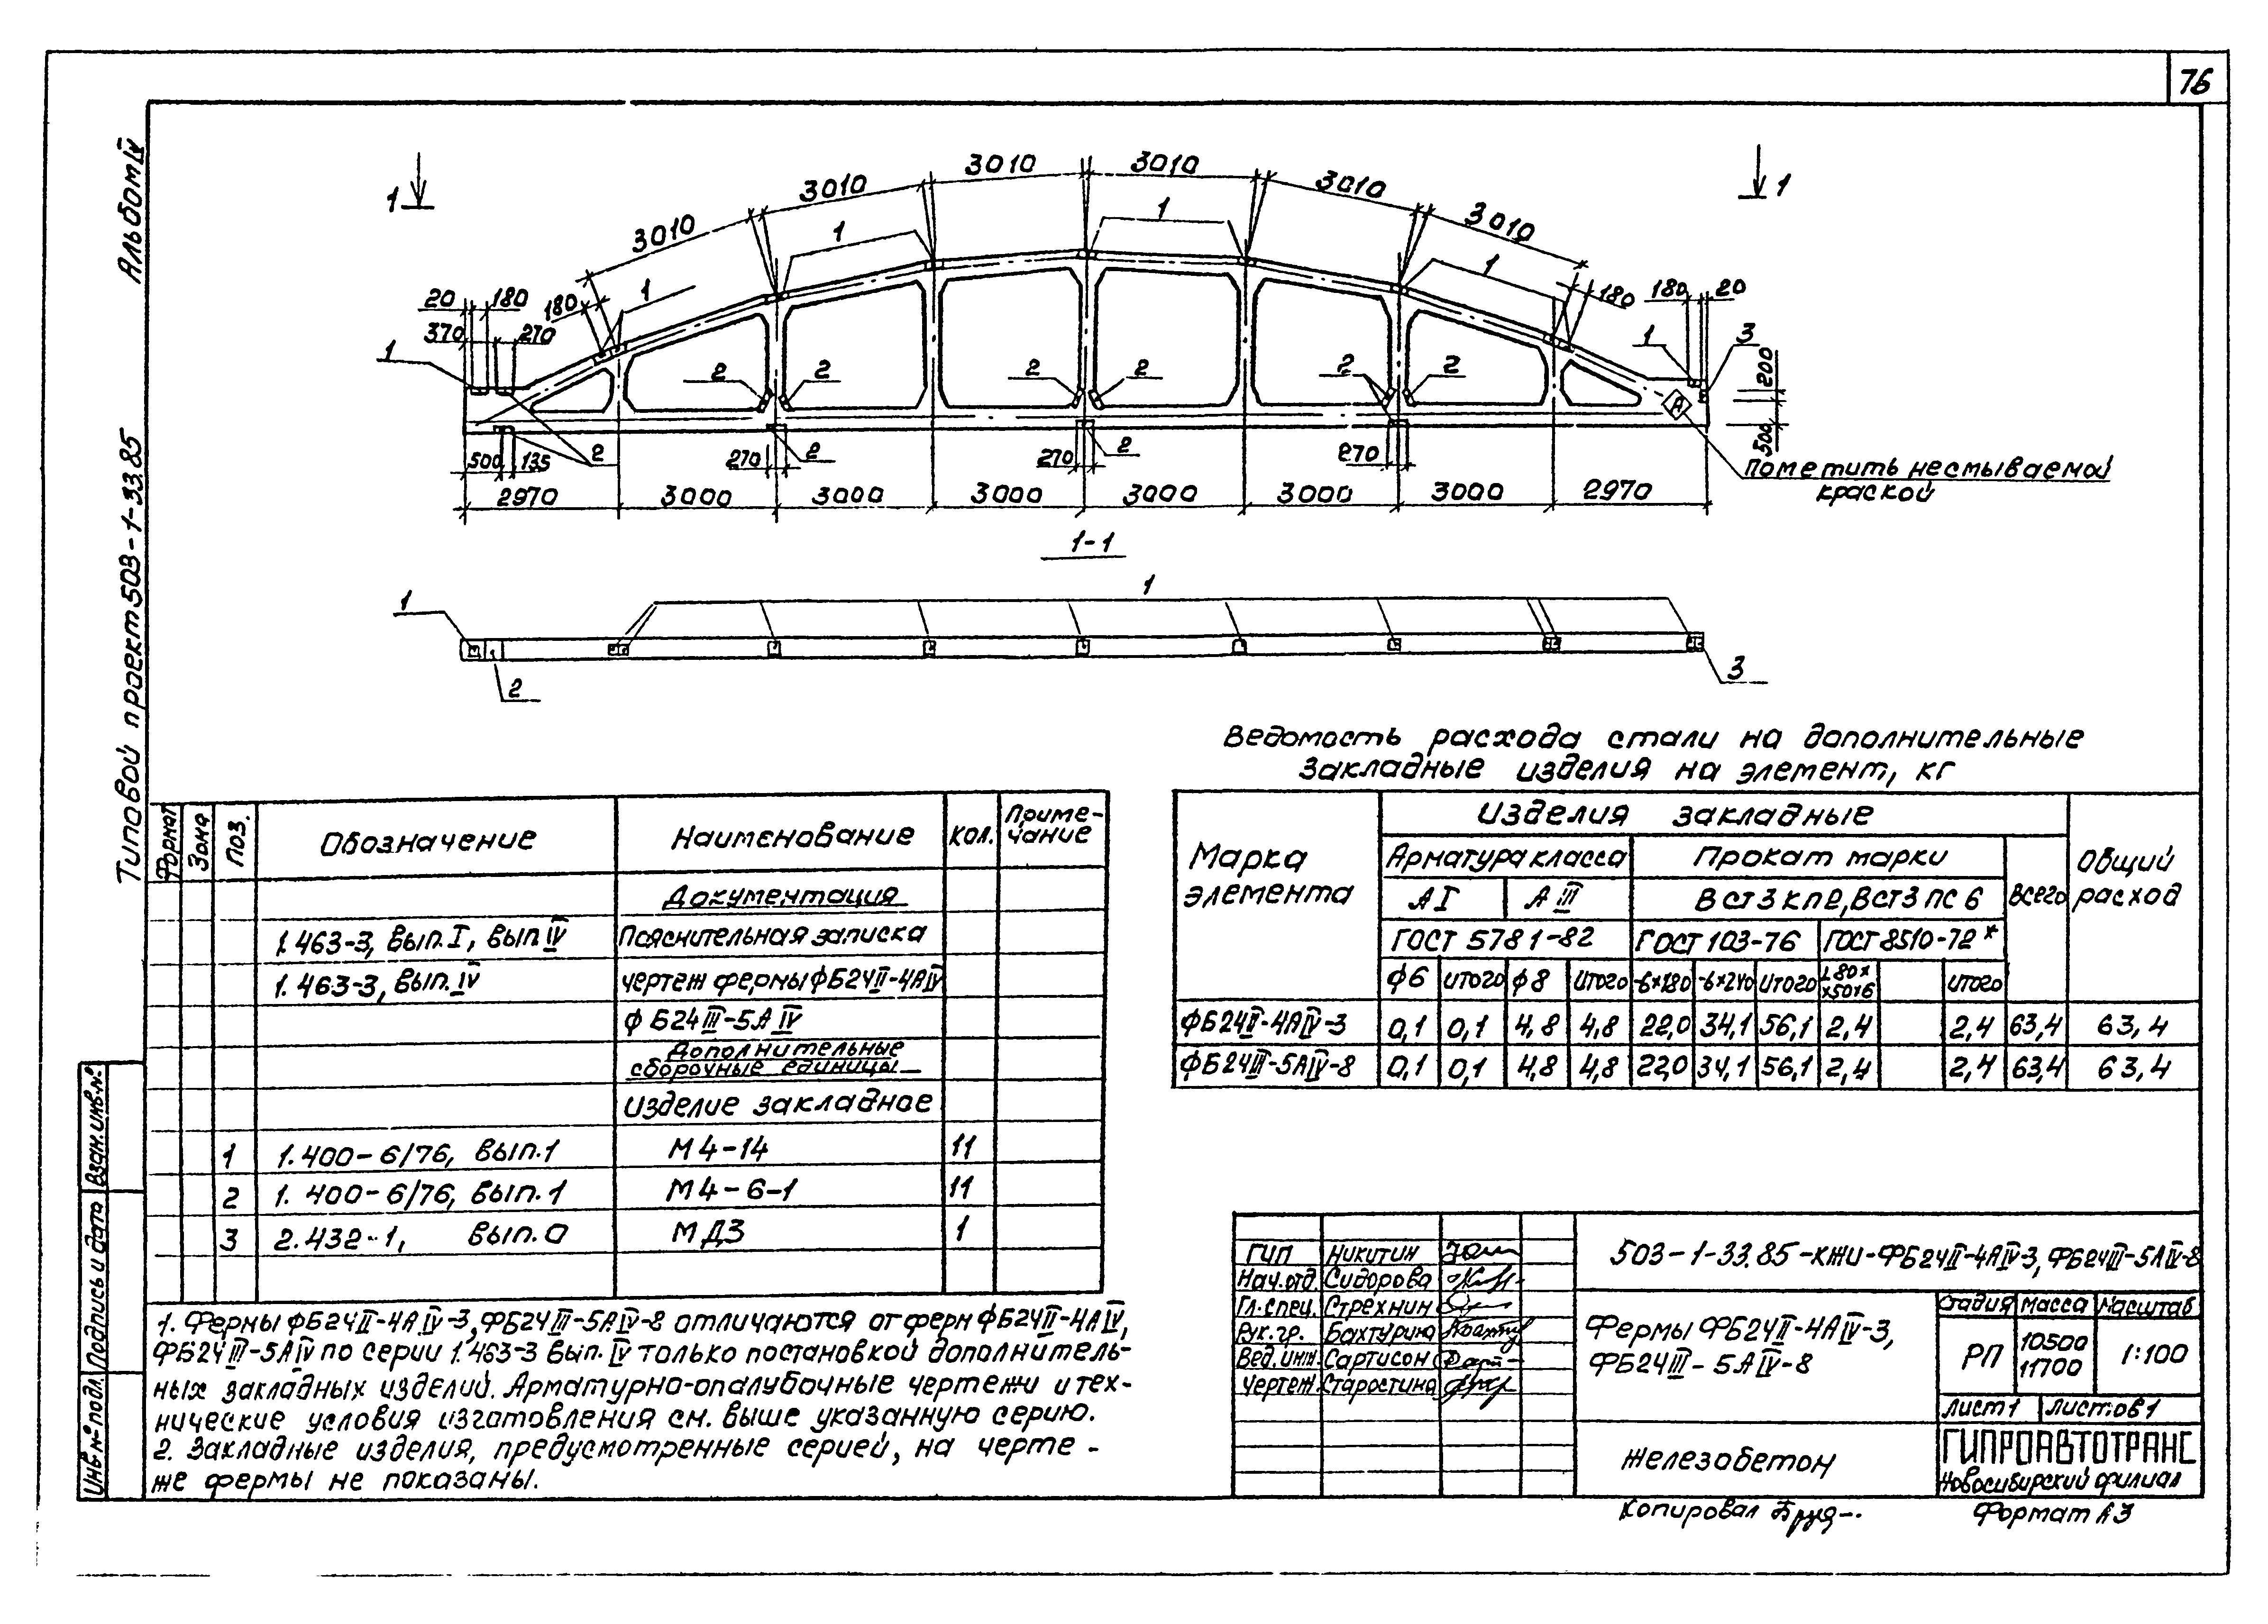 76
Альбом IV
Типовой проект 503-1-33.85
Взам. инв. №
Подпись и дата
Инв. № подл.
1
1
3010
3010
3010
3010
3010
3010
1
1
1
1
20
180
370
270
180
180
180
20
1
1
3
200
500
2
2
2
2
2
2
2
2
2
500
135
270
270
270
А
Пометить несмываемой
краской
2970
3000
3000
3000
3000
3000
3000
2970
1-1
1
1
2
3
Ведомость расхода стали на дополнительные
закладные изделия на элемент, кг
Марка элемента
Изделия закладные
Общий расход
Арматура класса
Прокат марки
Всего
А I
А III
ВСт3кп2, ВСт3пс6
ГОСТ 5781-82
ГОСТ 103-76
ГОСТ 8510-72*
ф6 итого ф8 итого -6×180 -6×240 итого L80××50×6 итого
ФБ24II-4АIV-3 0,1 0,1 4,8 4,8 22,0 34,1 56,1 2,4 2,4 63,4 63,4
ФБ24III-5АIV-8 0,1 0,1 4,8 4,8 22,0 34,1 56,1 2,4 2,4 63,4 63,4
Формат Зона Поз. Обозначение Наименование Кол. Примечание
Документация
1.463-3, вып. I, вып IV Пояснительная записка
1.463-3, вып. IV чертеж фермы ФБ24II-4АIV
ФБ24III-5АIV
Дополнительные
сборочные единицы
Изделие закладное
1 1.400-6/76, вып.1 М4-14 11
2 1.400-6/76, вып.1 М4-6-1 11
3 2.432-1, вып.0 МД3 1
1. Фермы ФБ24II-4АIV-3, ФБ24III-5АIV-8 отличаются от ферм ФБ24II-4АIV,
ФБ24III-5АIV по серии 1.463-3 вып. IV только постановкой дополнитель-
ных закладных изделий. Арматурно-опалубочные чертежи и тех-
нические условия изготовления см. выше указанную серию.
2. Закладные изделия, предусмотренные серией, на черте-
же фермы не показаны.
ГИП Никитин
Нач.отд. Сидорова
Гл.спец. Стрехнин
Рук.гр. Бахтурина
Вед.инж. Сартисон
Чертеж. Старостина
503-1-33.85-КЖИ-ФБ24II-4АIV-3, ФБ24III-5АIV-8
Фермы ФБ24II-4АIV-3,
ФБ24III-5АIV-8
Стадия Масса Масштаб
РП 10500 11700 1:100
Лист 1 Листов 1
Железобетон
ГИПРОАВТОТРАНС
Новосибирский филиал
Копировал
Формат А3